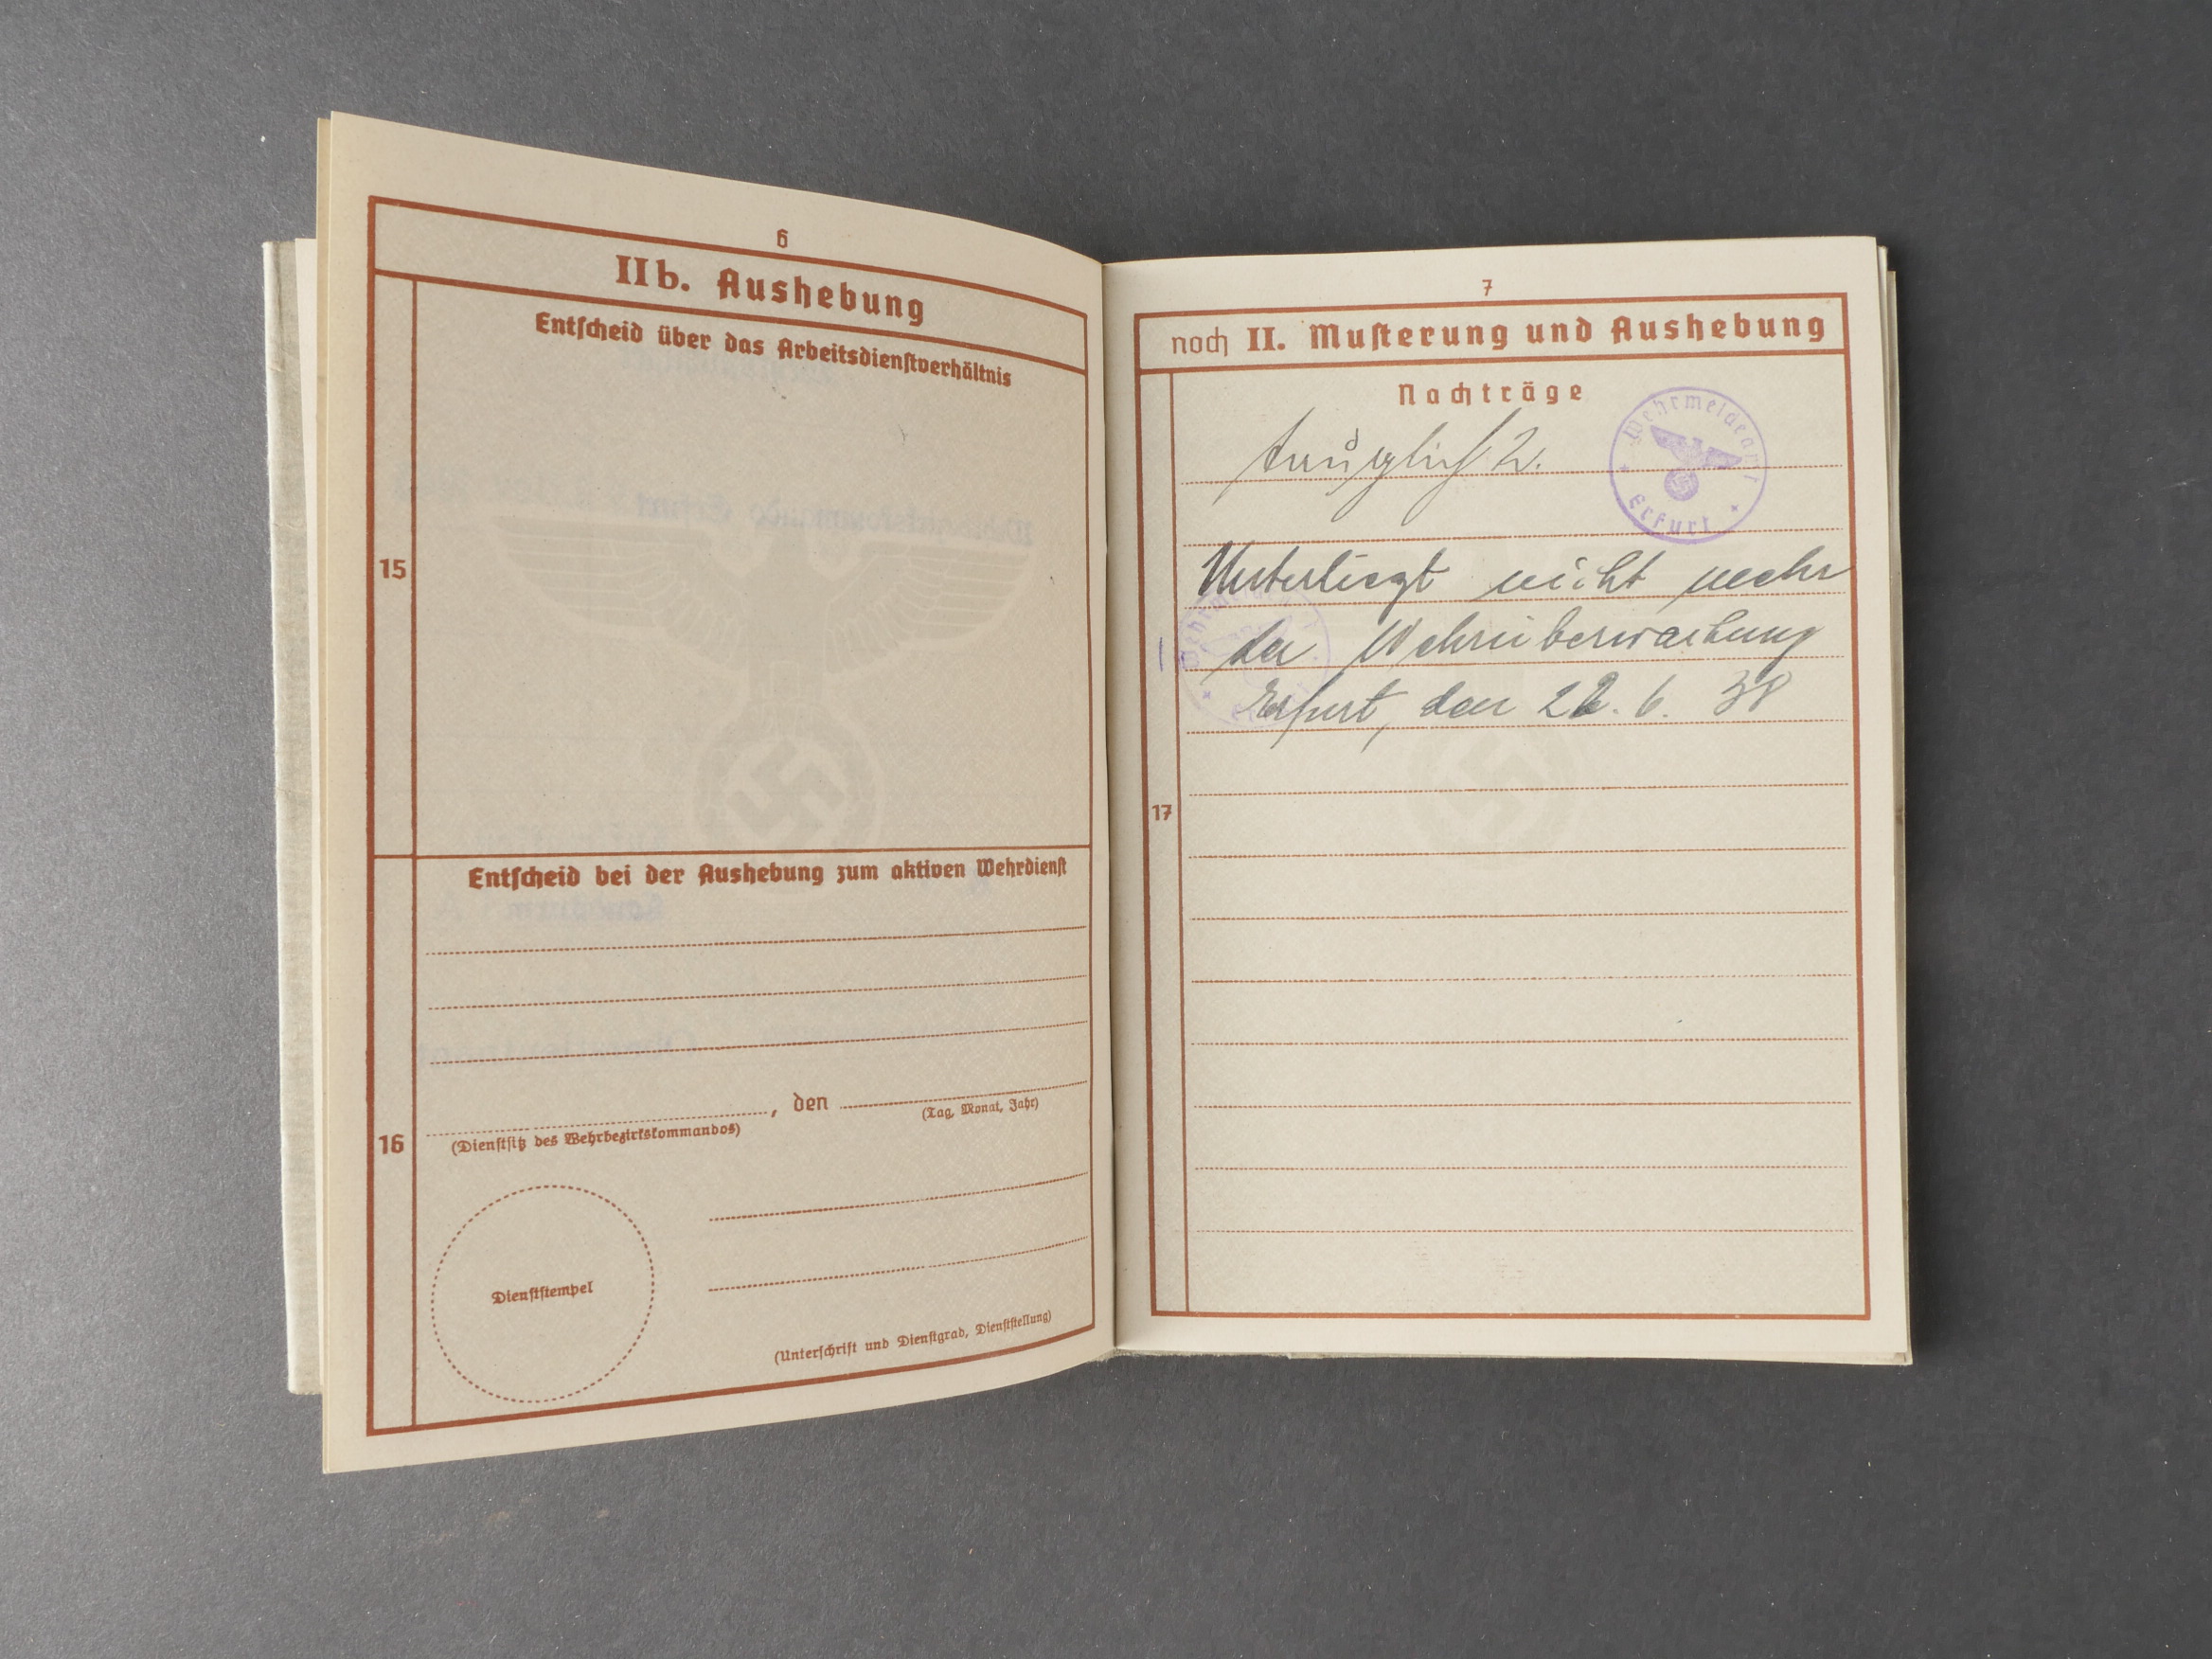 6
IIb. Aushebung
Entscheid über das Arbeitsdienstverhältnis
15
Entscheid bei der Aushebung zum aktiven Wehrdienst
, den
(Tag, Monat, Jahr)
(Dienstsitz des Wehrbezirkskommandos)
16
Dienststempel
(Unterschrift und Dienstgrad, Dienststellung)
7
noch II. Musterung und Aushebung
Nachträge
Wehrmeldeamt
Erfurt
tauglich 2.
Unterliegt nicht mehr
der Wehrüberwachung
Erfurt, den 6. 38
17